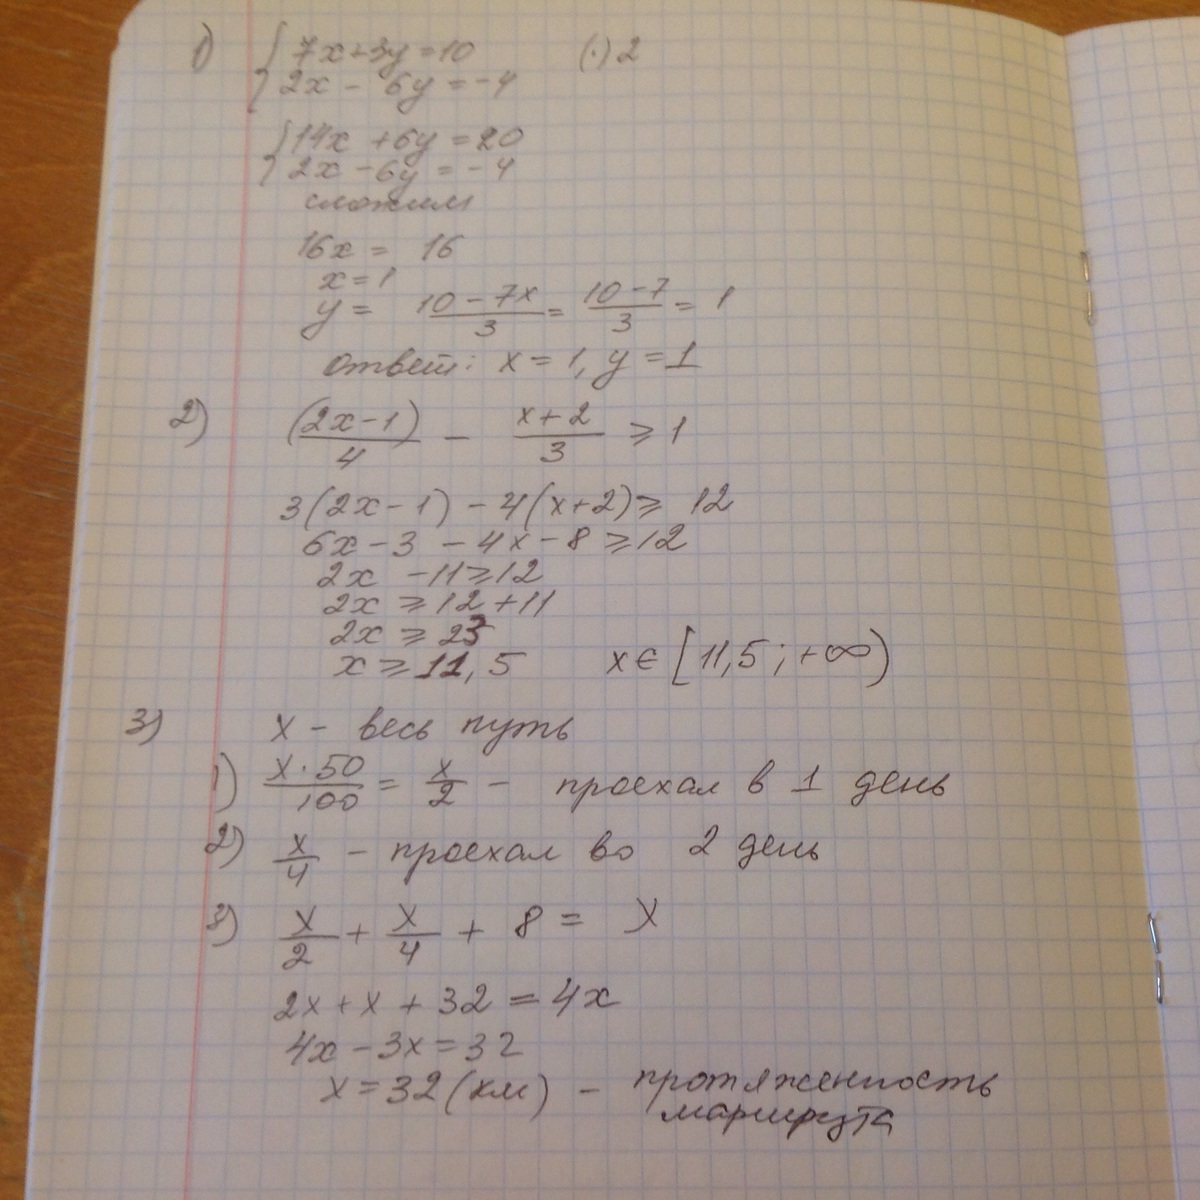 1) { 7x+3y=10 (·)2
2x - 6y = -4
{ 14x + 6y = 20
2x - 6y = -4
сложим
16x = 16
x = 1
y = (10 - 7x)/3 = (10 - 7)/3 = 1
Ответ: x = 1, y = 1
2) (2x-1)/4 - (x+2)/3 ≥ 1
3(2x-1) - 4(x+2) ≥ 12
6x - 3 - 4x - 8 ≥ 12
2x - 11 ≥ 12
2x ≥ 12 + 11
2x ≥ 23
x ≥ 11,5 x ∈ [11,5; +∞)
3) x - весь путь
1) (x·50)/100 = x/2 - проехал в 1 день
2) x/4 - проехал во 2 день
3) x/2 + x/4 + 8 = x
2x + x + 32 = 4x
4x - 3x = 32
x = 32 (км) - протяженность
маршрута